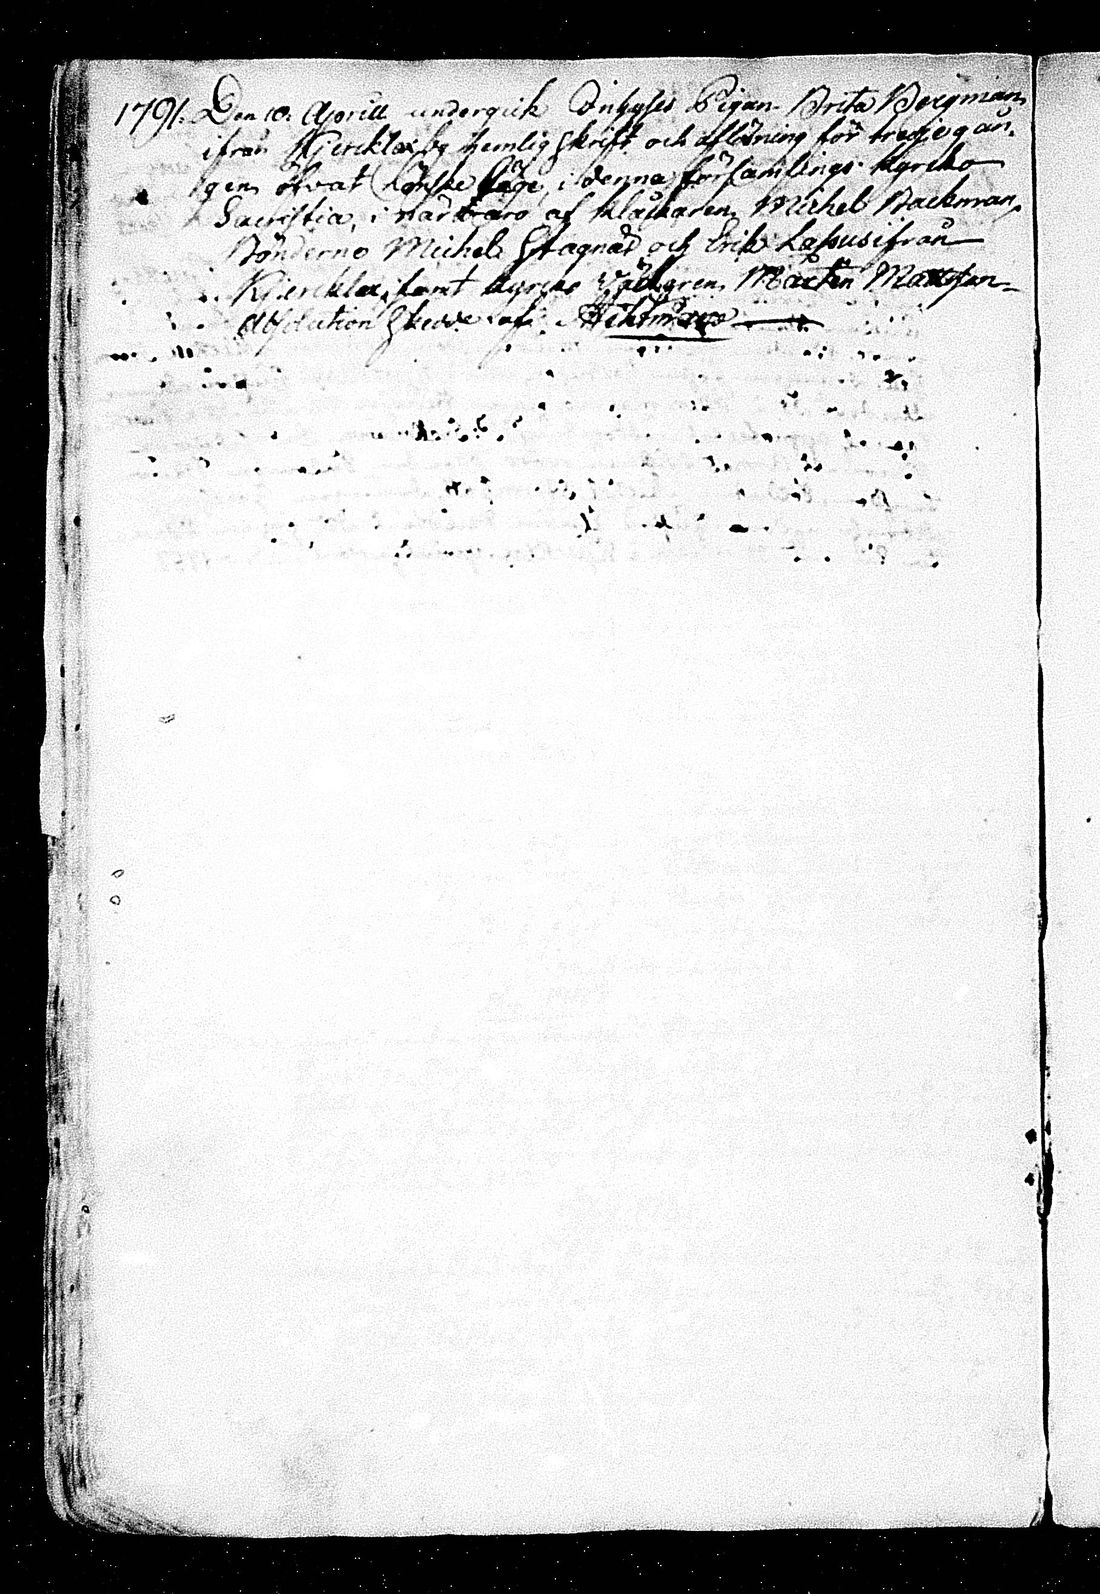 1791. Den 10. Aprill undergick Inhyses Pigan Brita Bergman,
ifrån Kjercklax by hemlig skrift och aflösning för tredje gån-
gen, öfvat lönske läge, i denna församlings kyrcko
Sacristia, i närvaro af klåckaren, Michel Backman,
Bönderne Michel Stagnäs och Erik Lassus ifrån
Kjercklax, samt kyrcko Mårten Mattsson
Absolution skedde af